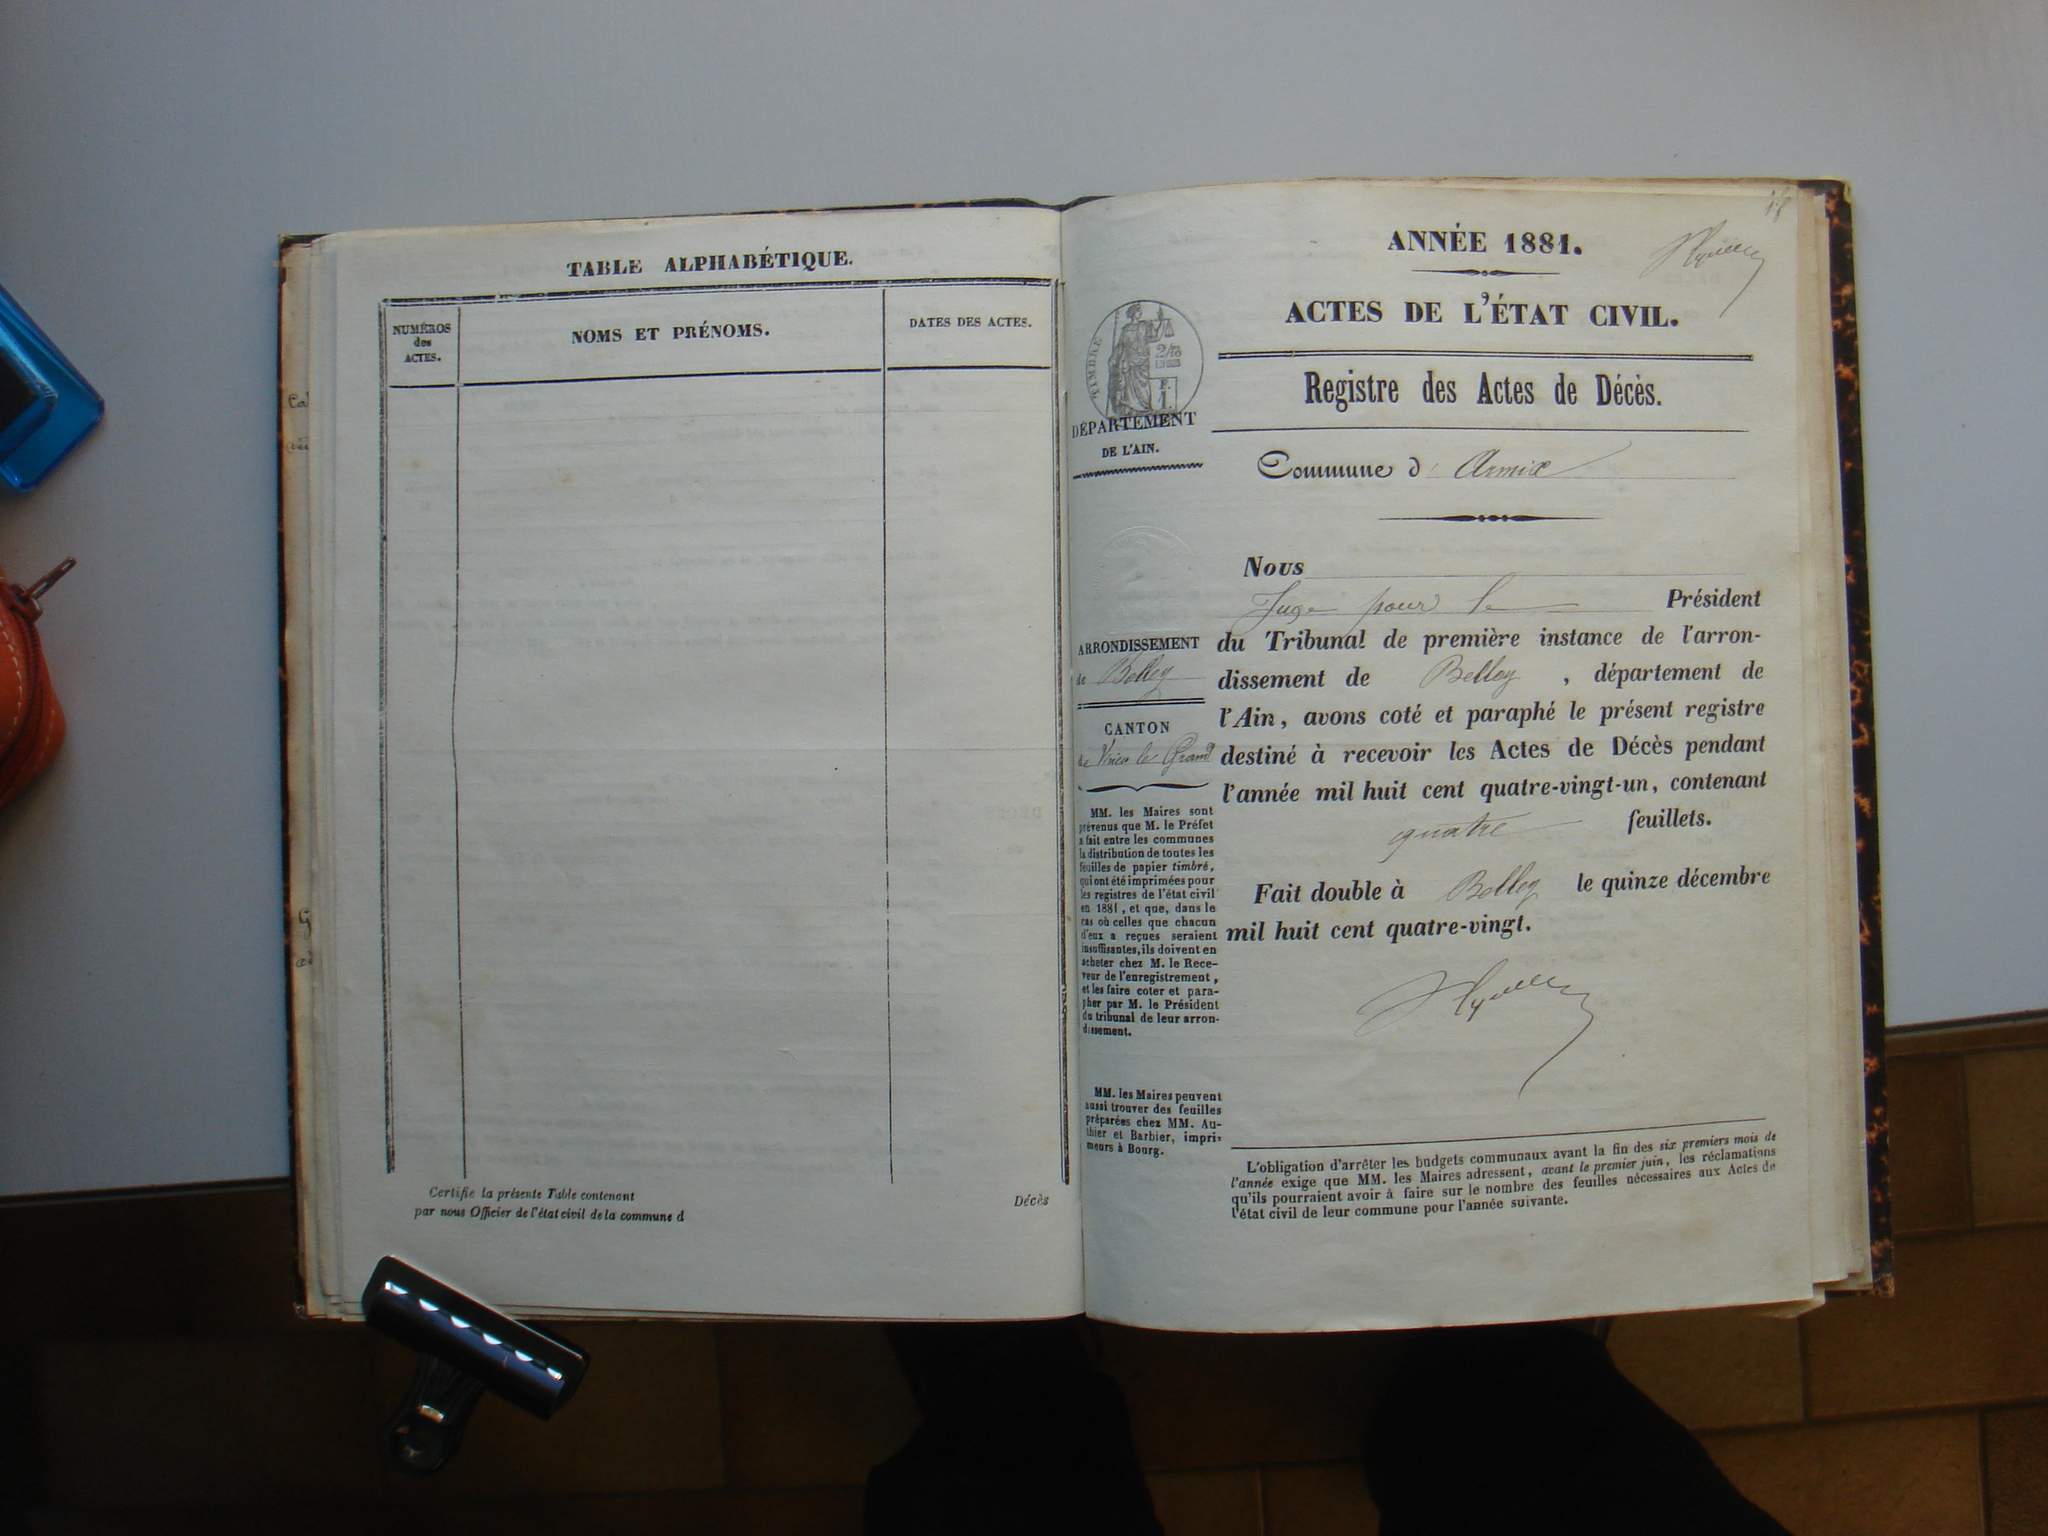 TABLE ALPHABÉTIQUE.
NUMÉROS
des
ACTES.
NOMS ET PRÉNOMS.
DATES DES ACTES.
Certifie la présente Table contenant
Décès
par nous Officier de l'état civil de la commune d
18
ANNÉE 1881.
ACTES DE L'ÉTAT CIVIL.
Registre des Actes de Décès.
Commune d' Armix
TIMBRE
DÉPARTEMENT
DE L'AIN.
ARRONDISSEMENT
de Belley
CANTON
de Virieu le Grand
MM. les Maires sont
prévenus que M. le Préfet
a fait entre les communes
la distribution de toutes les
feuilles de papier timbré,
qui ont été imprimées pour
les registres de l'état civil
en 1881, et que, dans le
cas où celles que chacun
d'eux a reçues seraient
insuffisantes, ils doivent en
acheter chez M. le Rece-
veur de l'enregistrement,
et les faire coter et para-
pher par M. le Président
du tribunal de leur arron-
dissement.
MM. les Maires peuvent
aussi trouver des feuilles
préparées chez MM. Au-
thier et Barbier, impri-
meurs à Bourg.
Nous
Juge pour le Président
du Tribunal de première instance de l'arron-
dissement de Belley, département de
l'Ain, avons coté et paraphé le présent registre
destiné à recevoir les Actes de Décès pendant
l'année mil huit cent quatre-vingt-un, contenant
quatre feuillets.
Fait double à Belley le quinze décembre
mil huit cent quatre-vingt.
L'obligation d'arrêter les budgets communaux avant la fin des six premiers mois de
l'année exige que MM. les Maires adressent, avant le premier juin, les réclamations
qu'ils pourraient avoir à faire sur le nombre des feuilles nécessaires aux Actes de
l'état civil de leur commune pour l'année suivante.